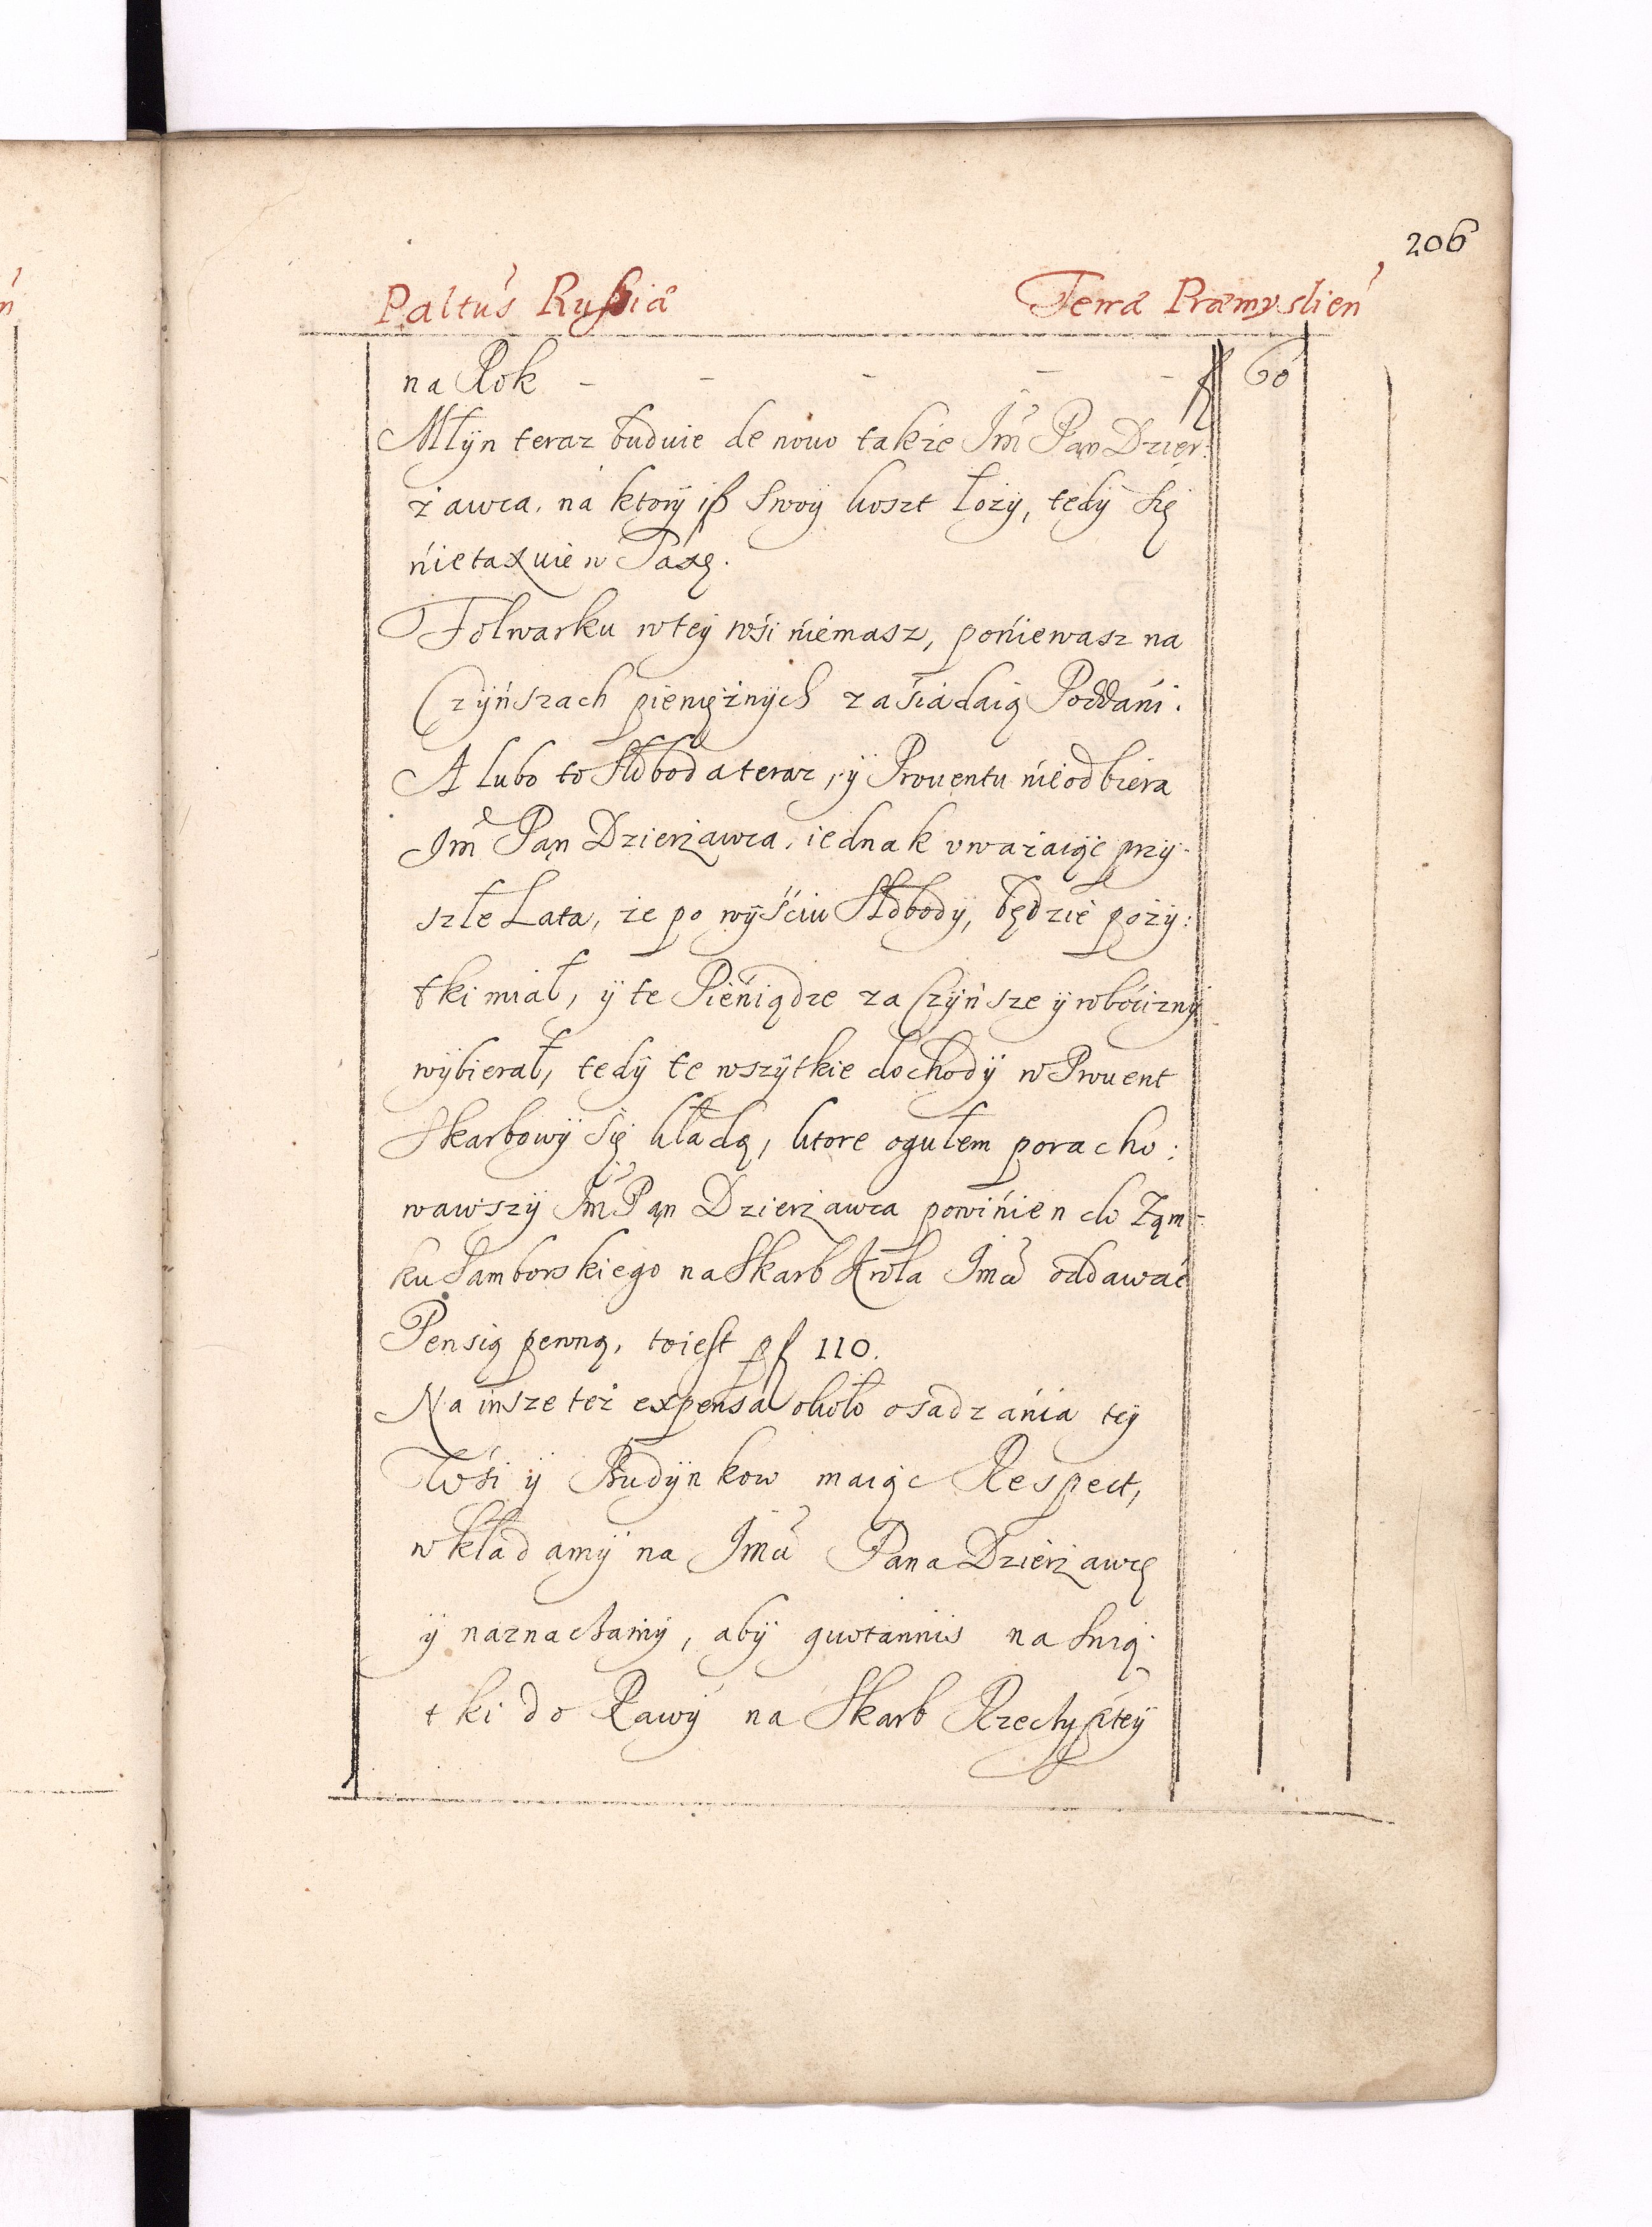 206
Paltus Rußiæ Terræ Præmyslień
na Rok - - - - - f 60
Młÿn teraz buduie de nouo także Jm̃ Pąn Dzier:
żawca, na ktorÿ iß swoÿ koszt łożÿ, tedÿ się
nietaxuie w Paxę.
Folwarku wteÿ wśi niemasz, poniewasz na
Czÿńszach pieniężnÿch zaśiadaią Poddani.
A lubo to Słoboda teraz, ÿ Prouentu nieodbiera
Jm̃ Pąn Dzierżawca, iednak vważaiąc przÿ-
szłe Lata, że po wÿśćiu Słobodÿ, będzie pożÿ:
tki miał, ÿ te Pieniądze za Czÿńsze ÿ roboćiznÿ
wÿbierał, tedÿ te wszÿtkie dochodÿ w Prouent
Skarbowÿ się kładą, ktore ogułem poracho:
wawszÿ Jm̃ Pąn Dzierżawca powinien do Ząm-
ku Samborskiego na Skarb Krola Jmći oddawać
Pensią pewną, toiest pf 110.
Na insze też expensa około osadzánia teÿ
Wśi ÿ Budÿnkow maiąc Respect,
wkładamÿ na Jmći Pana Dzierżawcę
ÿ naznachamÿ, abÿ quotannis na Swią-
tki do Rawÿ na Skarb Rzechypteÿ